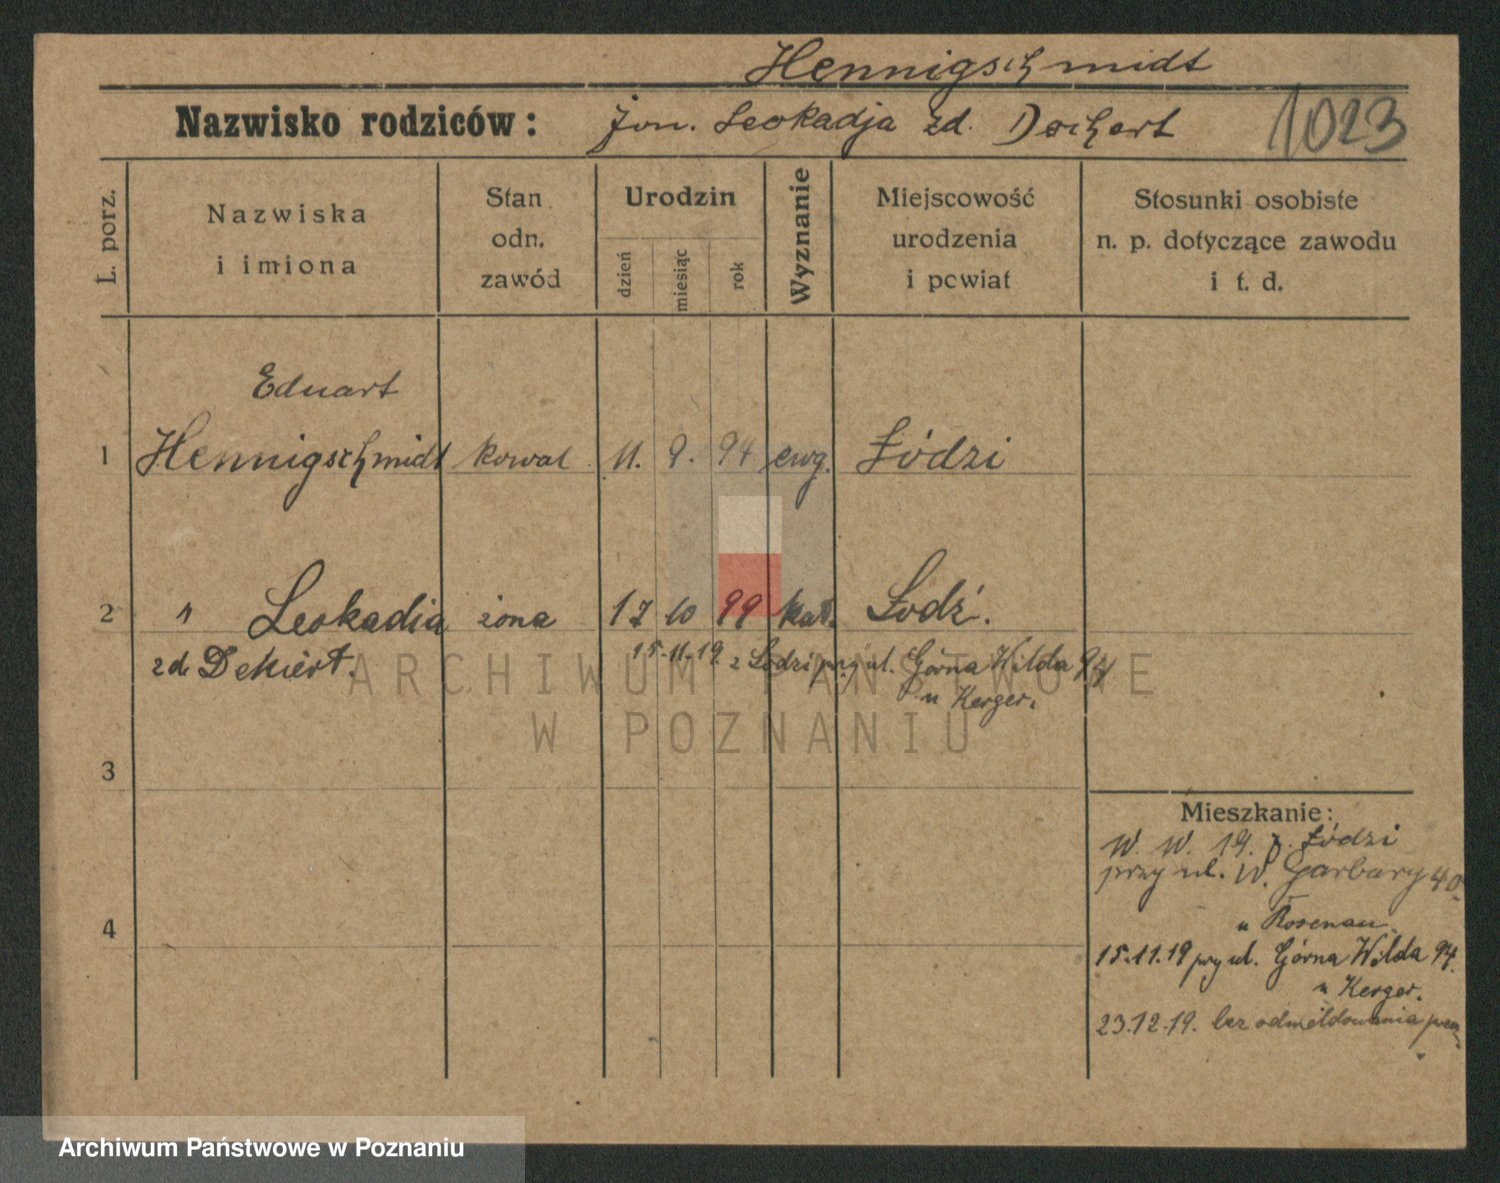 Hennigschmidt
Nazwisko rodziców: żon. Leokadja zd. Dechert 1023
L. porz.
Nazwiska
i imiona
Stan
odn.
zawód
Urodzin
dzień
miesiąc
rok
Wyznanie
Miejscowość
urodzenia
i powiat
Stosunki osobiste
n. p. dotyczące zawodu
i t. d.
Eduart
1 Hennigschmidt kowal 11. 9. 94 ewg. Łódzi
2 " Leokadia żona 17 10 99 kat. Lodź.
zd. Dekiert. 15.11.19 z Lodzi przy ul. Górna Wilda 94
u Kerger.
3
4
Mieszkanie:
W. W. 19. z. Łódzi
przy ul. W. Garbary 40
u Rosenau.
15.11.19 przy ul. Górna Wilda 94.
u Kerger.
23.12.19. bez odmeldowania
ARCHIWUM PAŃSTWOWE
W POZNANIU
Archiwum Państwowe w Poznaniu